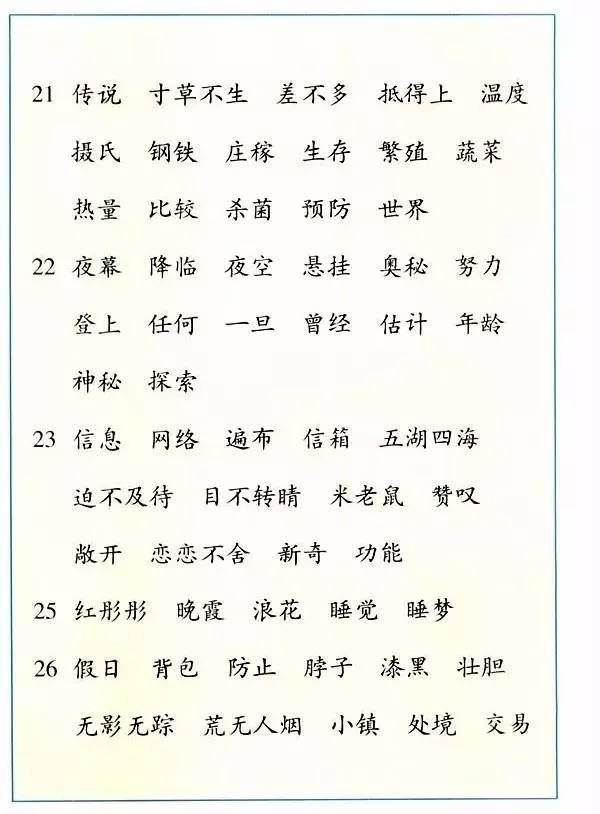 21 传说 寸草不生 差不多 抵得上 温度
摄氏 钢铁 庄稼 生存 繁殖 蔬菜
热量 比较 杀菌 预防 世界
22 夜幕 降临 夜空 悬挂 奥秘 努力
登上 任何 一旦 曾经 估计 年龄
神秘 探索
23 信息 网络 遍布 信箱 五湖四海
迫不及待 目不转睛 米老鼠 赞叹
敞开 恋恋不舍 新奇 功能
25 红彤彤 晚霞 浪花 睡觉 睡梦
26 假日 背包 防止 脖子 漆黑 壮胆
无影无踪 荒无人烟 小镇 处境 交易